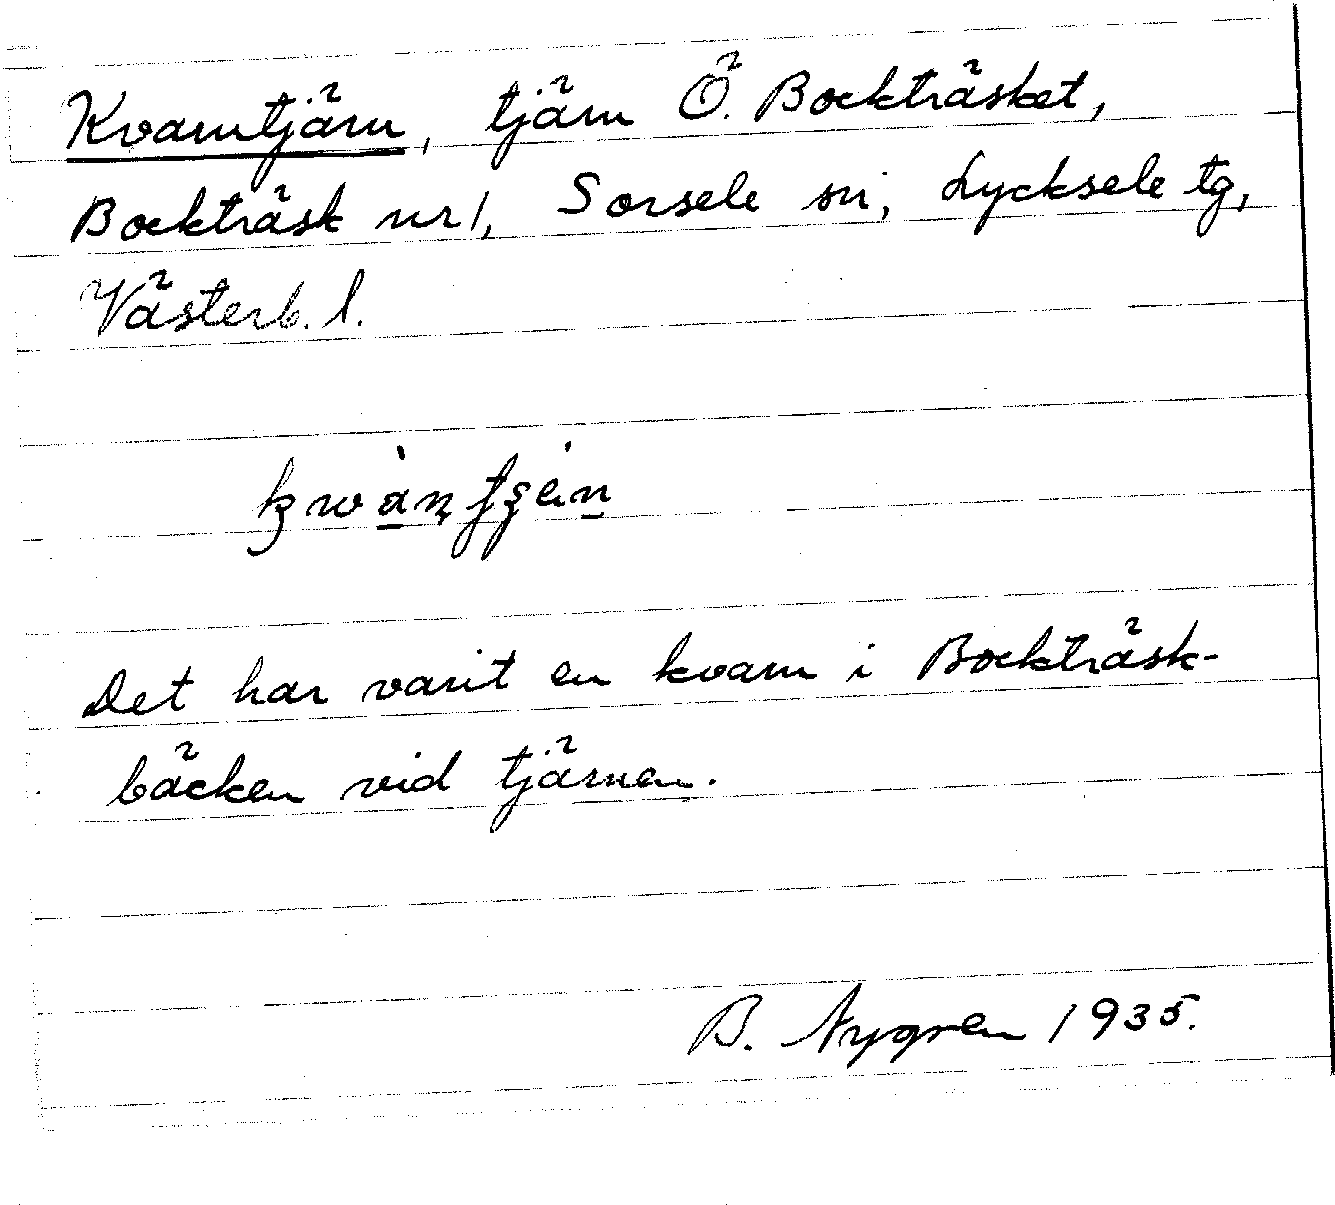 Kvarntjärn, tjärn Ö. Bockträsket,
Bockträsk nr 1, Sorsele sn, Lycksele tg,
Västerb. l.
Det har varit en kvarn i Bockträsk-
bäcken vid tjärnen.
B. Nygren 1935.